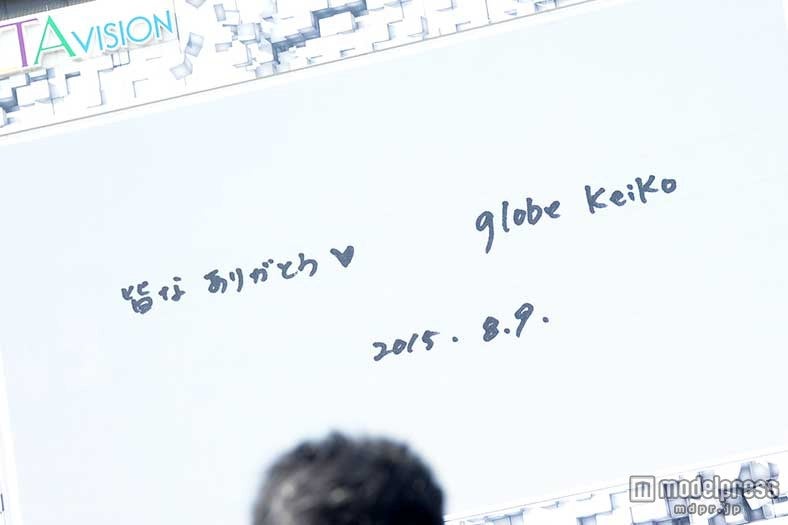 TA VISION
globe Keiko
皆な ありがとう♥
2015. 8.9.
modelpress
mdpr.jp